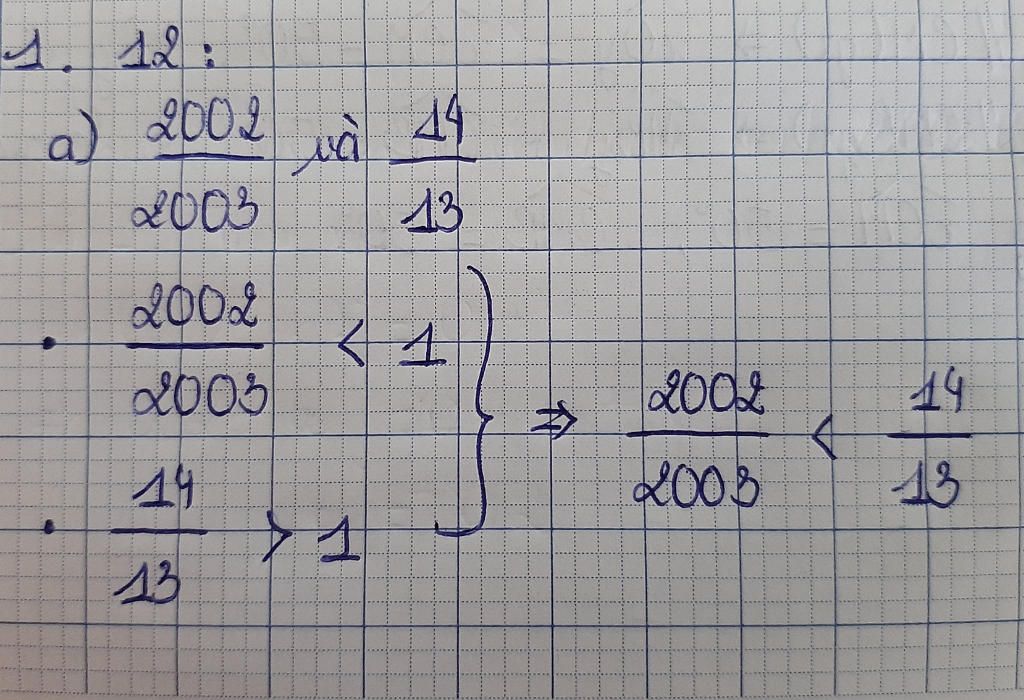 1. 12:
a) 2002/2003 và 14/13
• 2002/2003 < 1
• 14/13 > 1
⇒ 2002/2003 < 14/13